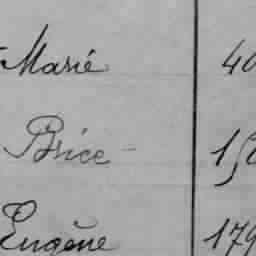 Marié 40
Brice 150
Eugène 179